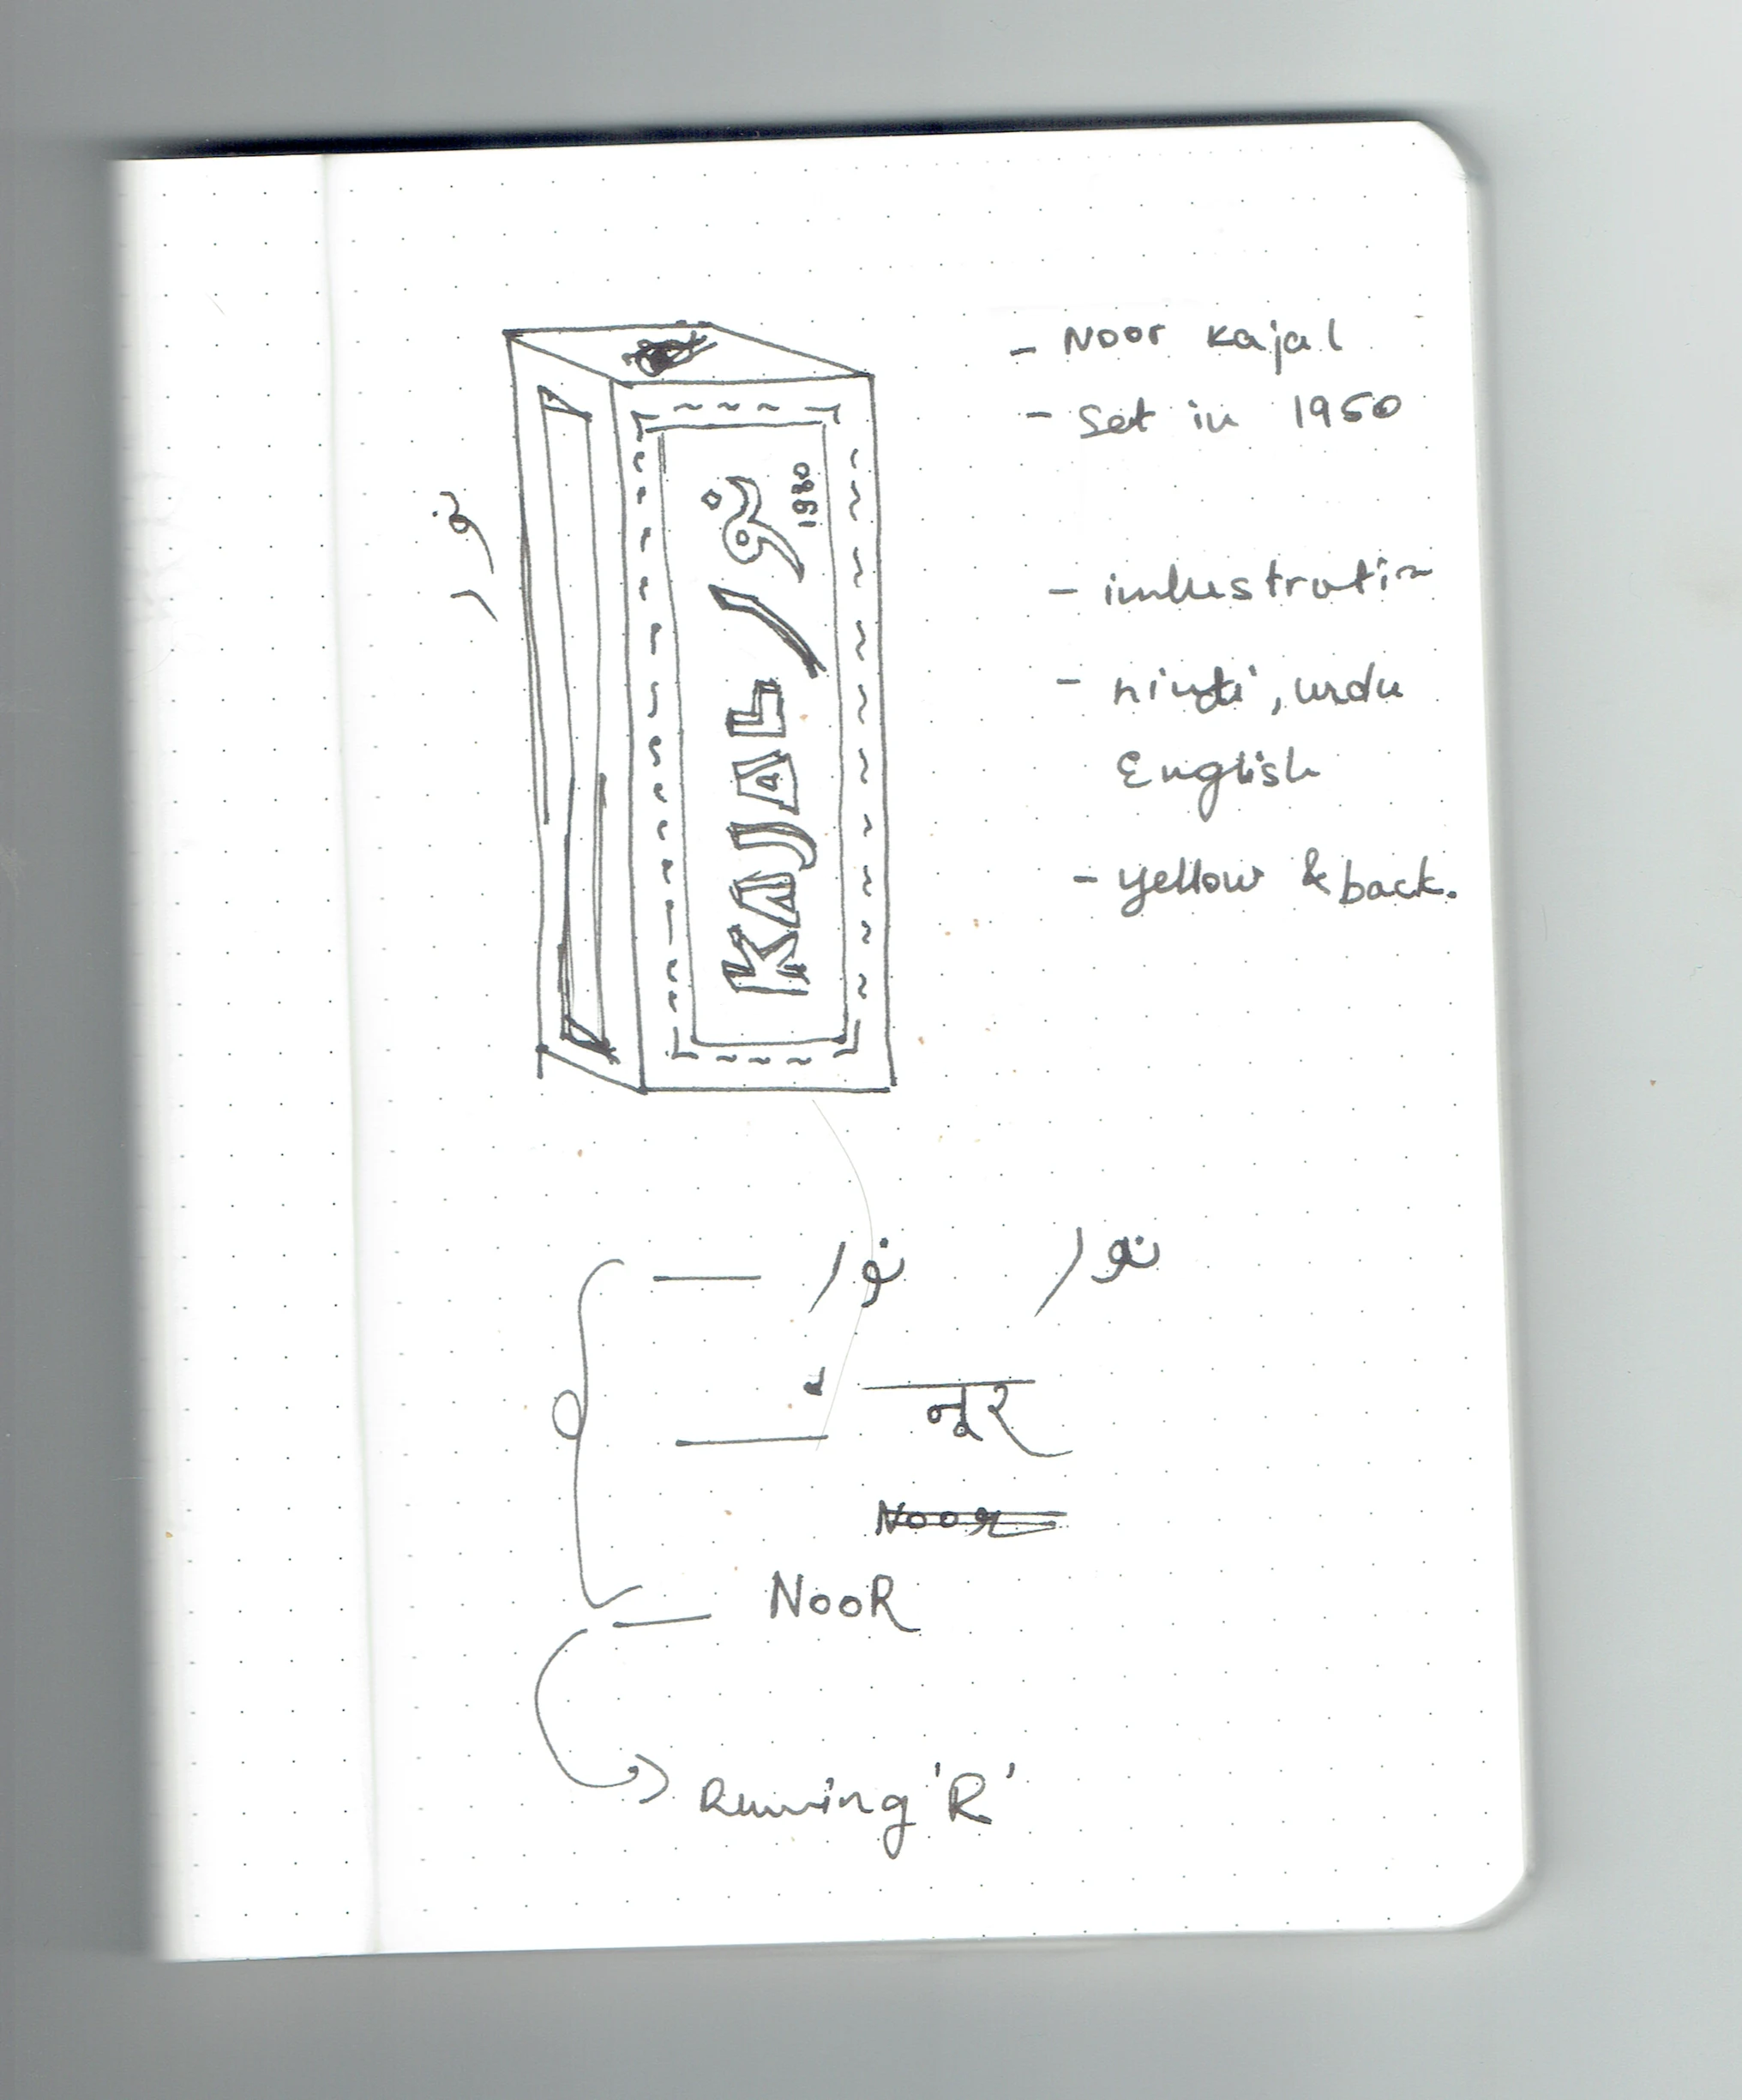 - Noor Kajal
- Set in 1950
- illustratin
- hindi, urdu
English
- yellow & back.
نور
KAJAL نور
1980
نور نور
नूर
Noor
NooR
Running 'R'